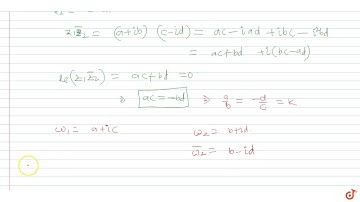 z₁z̄₂ = (a+ib) (c-id) = ac-iad +ibc-i²bd
= ac+bd +i(bc-ad)
Re(z₁z̄₂) = ac+bd =0
⇒ ac=-bd ⇒ a/b = -d/c = k
ω₁= a+ic ω₂= b+id
ω̄₂= b-id